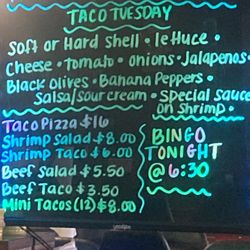 TACO TUESDAY
Soft or Hard shell • lettuce •
Cheese • tomato • onions • Jalapenos •
Black Olives • Banana Peppers •
Salsa/sour cream • special sauce
on Shrimp •
Taco Pizza $16
Shrimp Salad $8.00
Shrimp Taco $6.00
Beef Salad $5.50
Beef Taco $3.50
Mini Tacos (12) $8.00
BINGO
TONIGHT
@ 6:30